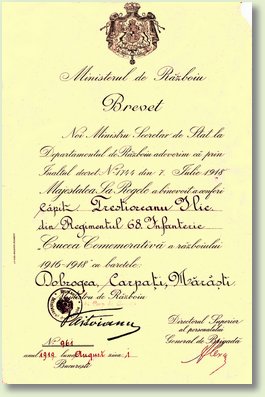 Ministerul de Războiu
Brevet
Noi Ministru Secretar de Stat la
Departamentul de Războiu adeverim că prin
Inaltul decret No. 1744 din 7. Iulie 1918
Majestatea Sa Regele a binevoit a conferi
Căpit. Trestioreanu Ilie
din Regimentul 68. Infanterie
„Crucea Comemorativă a războiului
1916-1918" cu baretele:
Dobrogea, Carpați, Mărăști
Ministru de Războiu
No. 961
anul 1919 luna August ziua 1
București
Directorul Superior
al personalului
General de Brigadă